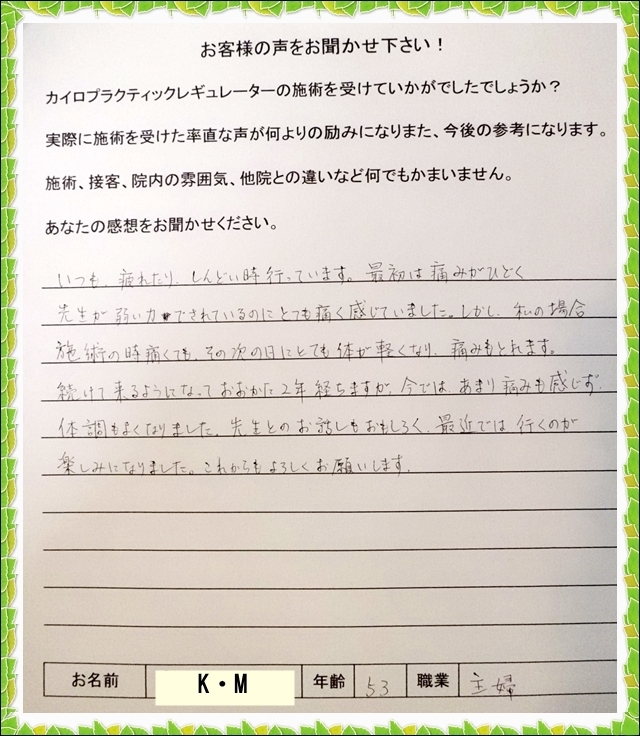 お客様の声をお聞かせ下さい！
カイロプラクティックレギュレーターの施術を受けていかがでしたでしょうか？
実際に施術を受けた率直な声が何よりの励みになりまた、今後の参考になります。
施術、接客、院内の雰囲気、他院との違いなど何でもかまいません。
あなたの感想をお聞かせください。
いつも、疲れたり、しんどい時行っています。最初は痛みがひどく
先生が弱い力でされているのにとても痛く感じていました。しかし、私の場合
施術の時痛くても、その次の日にとても体が軽くなり、痛みもとれます。
続けて来るようになっておおかた2年経ちますが、今では、あまり痛みも感じず、
体調もよくなりました。先生とのお話しもおもしろく、最近では行くのが
楽しみになりました。これからもよろしくお願いします。
お名前 K・M 年齢 53 職業 主婦